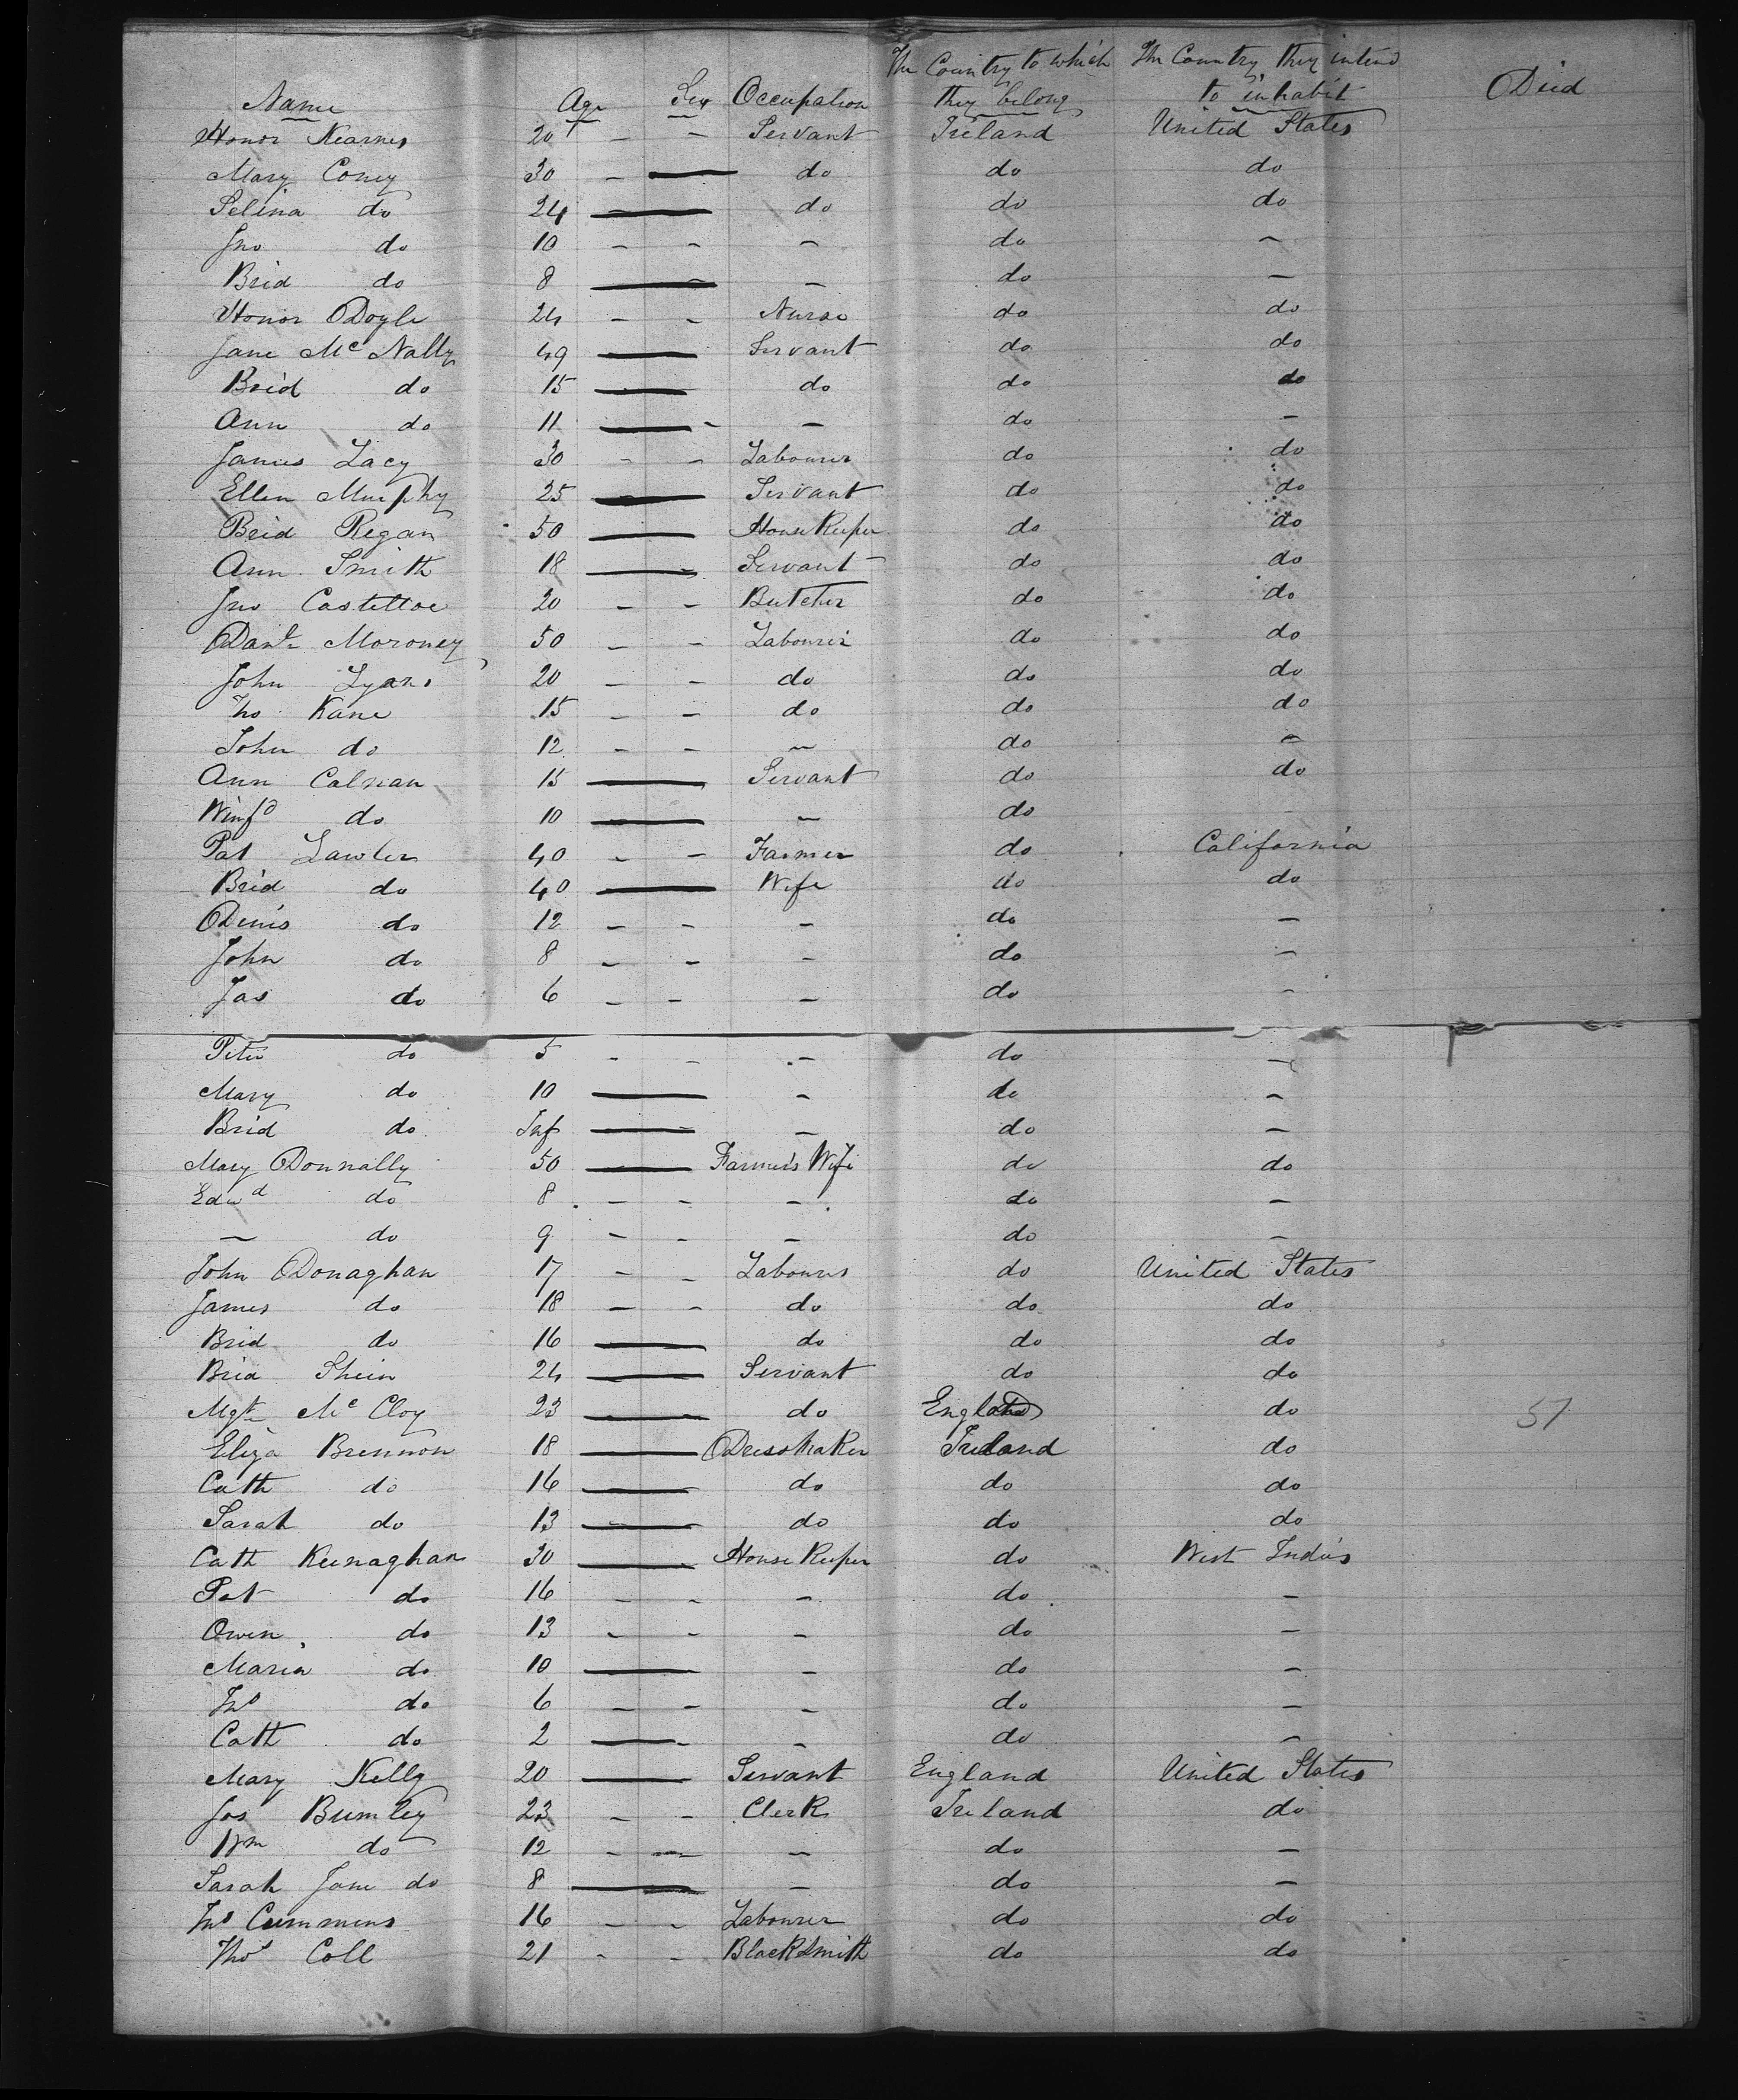 The Country to which The Country they intend
Name Age Sex Occupation they belong to inhabit Died
Honor Kearnes 20 - - Servant Ireland United States
Mary Coney 30 - — do do do
Selina do 24 — do do do
Jno do 10 - - - do -
Brid do 8 — - do -
Honor Doyle 24 - - Nurse do do
Jane Mc Nally 49 — Servant do do
Brid do 15 — do do do
Ann do 11 — - - do -
James Lacy 30 - - Labourer do do
Ellen Murphy 25 — Servant do do
Brid Regan 50 — House Keeper do do
Ann Smith 18 — Servant do do
Jno Costelloe 20 - - Butcher do do
Danl Moroney 50 - - Labourer do do
John Lyans 20 - - do do do
Tho Kane 15 - - do do do
John do 12 - - - do -
Ann Calnan 15 — Servant do do
Winfd do 10 — - do
Pat Lawler 40 - - Farmer do California
Brid do 40 — Wife do do
Denis do 12 - - - do -
John do 8 - - - do -
Jas do 6 - - - do -
Peter do 5 - - - do -
Mary do 10 — - do -
Brid do Inf — - do -
Mary Donnally 50 — Farmers Wife do do
Edwd do 8 - - - do -
- do 9 - - - do -
John Donaghan 17 - - Labourer do United States
James do 18 - - do do do
Brid do 16 — do do do
Brid Shein 24 — Servant do do
Mgt Mc Cloy 23 — do England do 51
Eliza Brennon 18 — Dressmaker Ireland do
Cath do 16 — do do do
Sarah do 13 — do do do
Cath Keenaghan 30 — House Keeper do West Indies
Pat do 16 - - - do -
Owen do 13 - - - do -
Maria do 10 — - do -
Jno do 6 - - - do -
Cath do 2 — - - do -
Mary Kelly 20 — Servant England United States
Jos Bumley 23 - - Clerk Ireland do
Wm do 12 - - - do -
Sarah Jane do 8 — - do -
Jno Cummens 16 - - Labourer do do
Thos Coll 21 - - BlackSmith do do